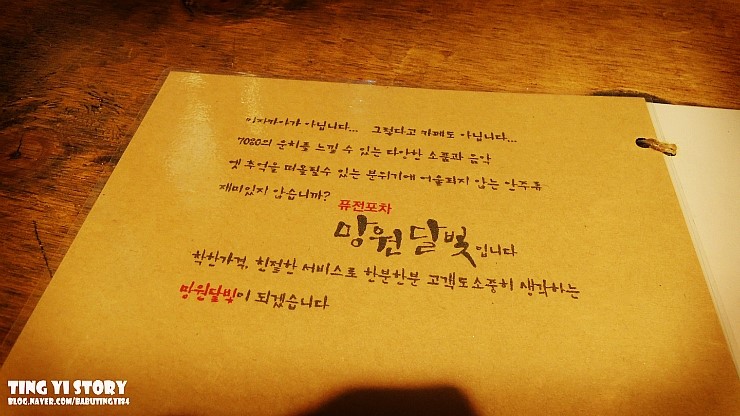 이자카야가 아닙니다... 그렇다고 카페도 아닙니다...
7080의 운치를 느낄 수 있는 다양한 소품과 음악
옛 추억을 떠올릴수 있는 분위기에 어울리지 않는 안주류
재미있지 않습니까?
퓨전포차
망원달빛입니다
착한가격, 친절한 서비스로 한분한분 고객도소중히 생각하는
망원달빛이 되겠습니다
TING YI STORY
BLOG.NAVER.COM/BABUTINGYI84